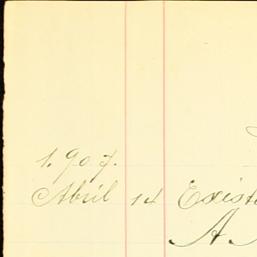 1.907.
Abril 14 Exist
A.